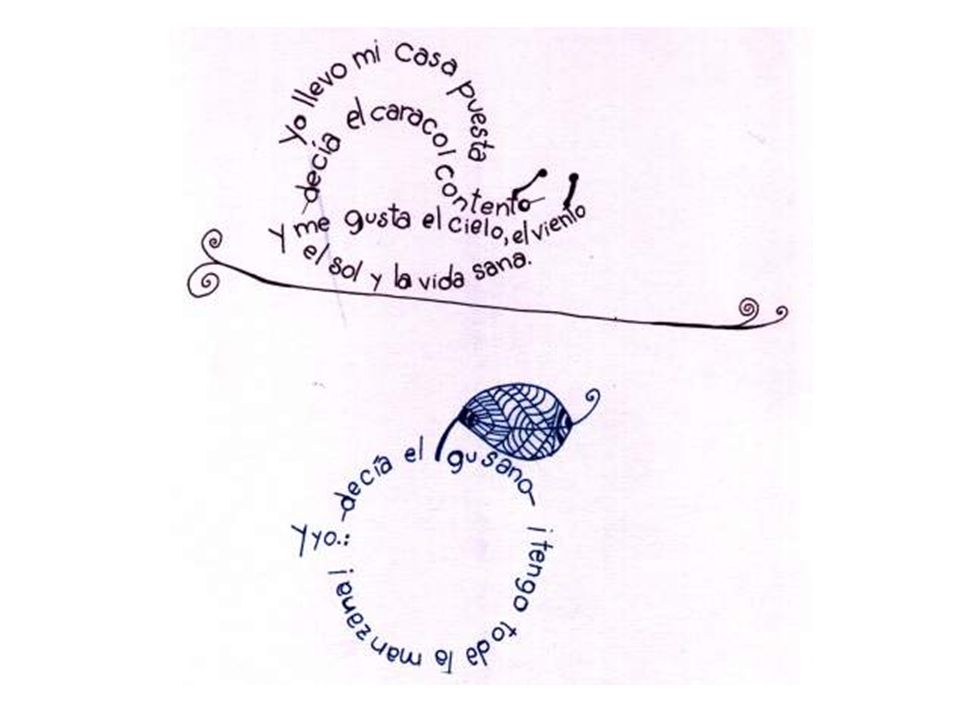 Yo llevo mi casa puesta
—decía el caracol contento—
y me gusta el cielo, el viento
el sol y la vida sana.
Y yo.:
—decía el gusano—
¡tengo toda la manzana!